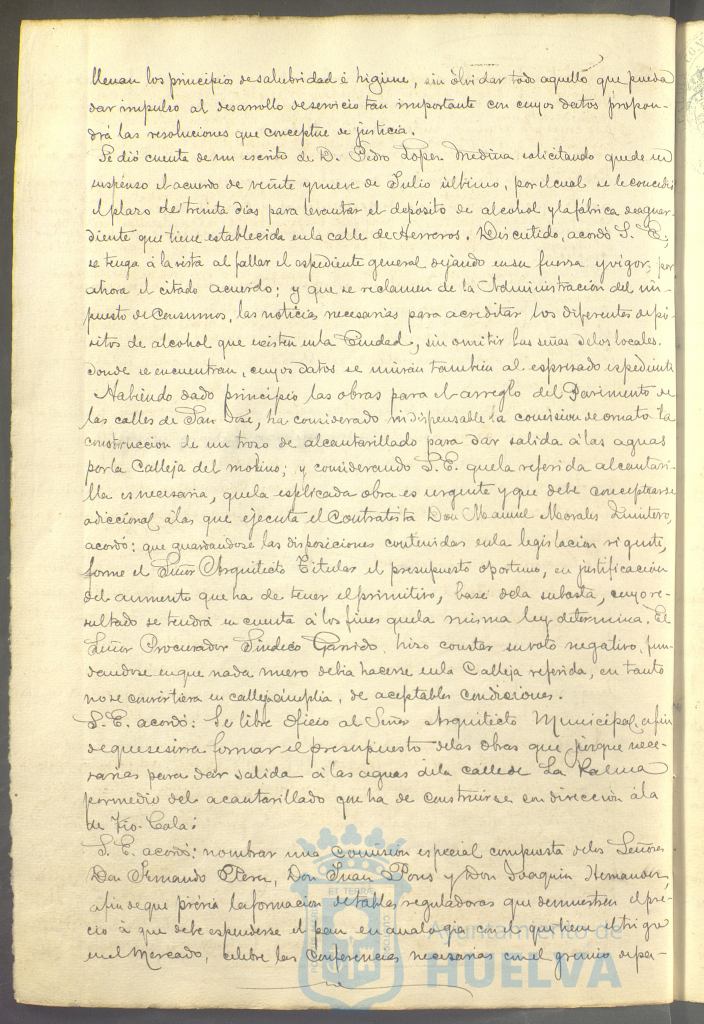 llenan los principios de salubridad é higiene, sin olvidar todo aquello que pueda
dar impulso al desarrollo de servicio tan importante con cuyos datos propon-
drá las resoluciones que conceptue de justicia.
Se dió cuenta de un escrito de D. Pedro Lopez Medina solicitando quede en
suspenso el acuerdo de veinte y nueve de Julio último, por el cual se le concedió
el plazo de treinta dias para levantar el depósito de alcohol y la fábrica de aguar-
diente que tiene establecida en la calle de Herreros. Discutido, acordó S. E.,
se tenga á la vista al fallar el espediente general dejando en su fuerza y vigor, por
ahora el citado acuerdo; y que se reclamen de la Administracion del im-
puesto de Consumos, las noticias necesarias para acreditar los diferentes depó-
sitos de alcohol que existen en la Ciudad, sin omitir las señas de los locales
donde se encuentran, cuyos datos se unirán tambien al espresado espediente
Habiendo dado principio las obras para el arreglo del Pavimento de
las calles de San José, ha considerado indispensable la comision de ornato la
construccion de un trozo de alcantarillado para dar salida á las aguas
por la Calleja del molino; y considerando S. E. que la referida alcantari-
lla es necesaria, que la esplicada obra es urgente y que debe conceptuarse
adiccional á las que ejecuta el Contratista Don Manuel Morales Quintero,
acordó: que guardandose las disposiciones contenidas en la legislacion vigente,
forme el Señor Arquitecto Titular el presupuesto oportuno, en justificacion
del aumento que ha de tener el primitivo, base de la subasta, cuyo re-
sultado se tendrá en cuenta á los fines que la misma ley determina. El
Señor Procurador Síndico Garrido, hizo constar su voto negativo, fun-
dandose en que nada nuevo debia hacerse en la Calleja referida, en tanto
no se convirtiera en calleja ámplia, de aceptables condiciones.
S. E. acordó: Se libre oficio al Señor Arquitecto Municipal, á fin
de que se sirva formar el presupuesto de las obras que juzgue nece-
sarias para dar salida á las aguas de la calle de La Palma
por medio del acantarillado que ha de construirse en direccion á la
de Tio-Cala:
S. E. acordó: nombrar una Comision especial compuesta de los Señores
Don Fernando Perez, Don Juan Pons y Don Joaquin Hernandez
á fin de que prévia la formacion de tablas reguladoras que demuestren el pre-
cio á que debe espenderse el pan en analogia con el que tiene el trigo
en el Mercado, celebre las Conferencias necesarias con el gremio de pa-
Ayuntamiento de
HUELVA